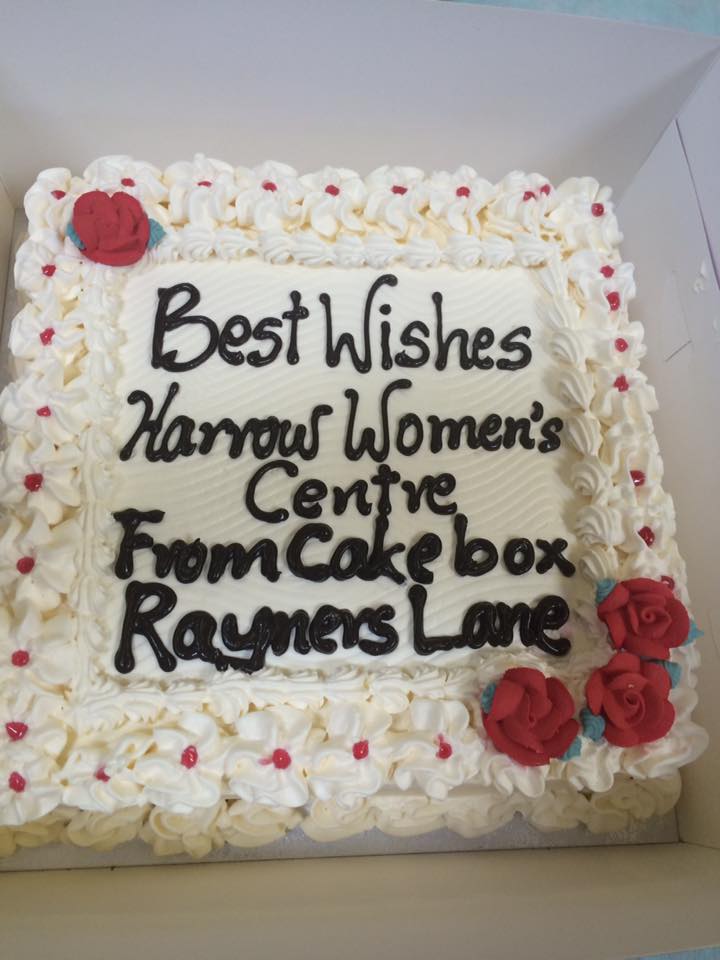 Best Wishes
Harrow Women's
Centre
From Cake box
Rayners Lane